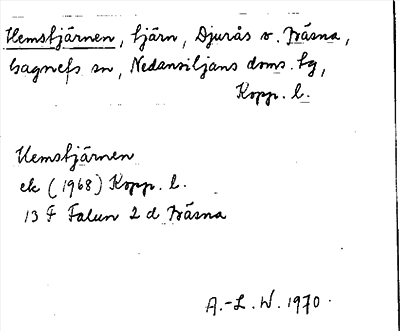 Hemstjärnen, tjärn, Djurås v. Bäsna,
Gagnefs sn, Nedansiljans doms. tg,
Kopp. l.
Hemstjärnen
ek (1968) Kopp. l.
13 F Falun 2 d Bäsna
A.-L. W. 1970.